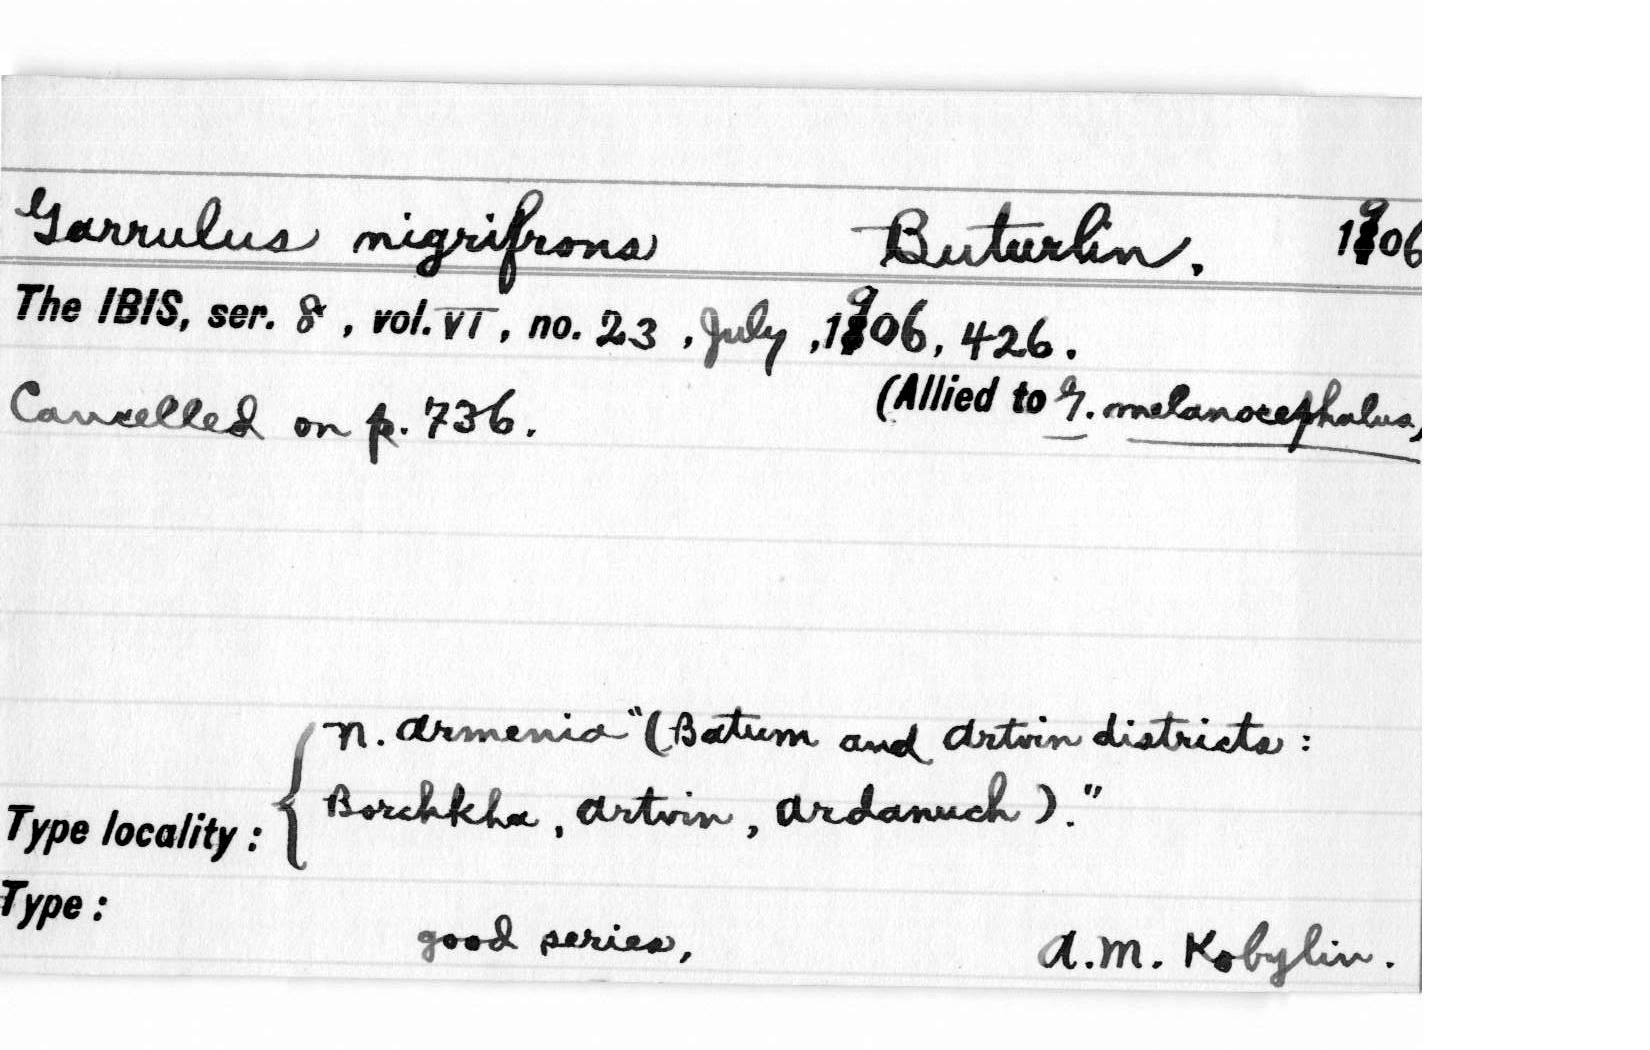 Garrulus nigrifrons Buturlin, 1906
The IBIS, ser. 8, vol. VI, no. 23, July, 1906, 426.
Cancelled on p. 736. (Allied to G. melanocephalus)
N. Armenia "(Batum and Artvin districts:
Borchkha, Artvin, Ardanuch)."
Type locality:
Type:
good series, A.M. Kobylin.